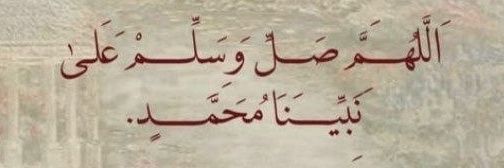 اَللَّهُمَّ صَلِّ وَسَلِّمْ عَلَىٰ
نَبِيِّنَا مُحَمَّدٍ.